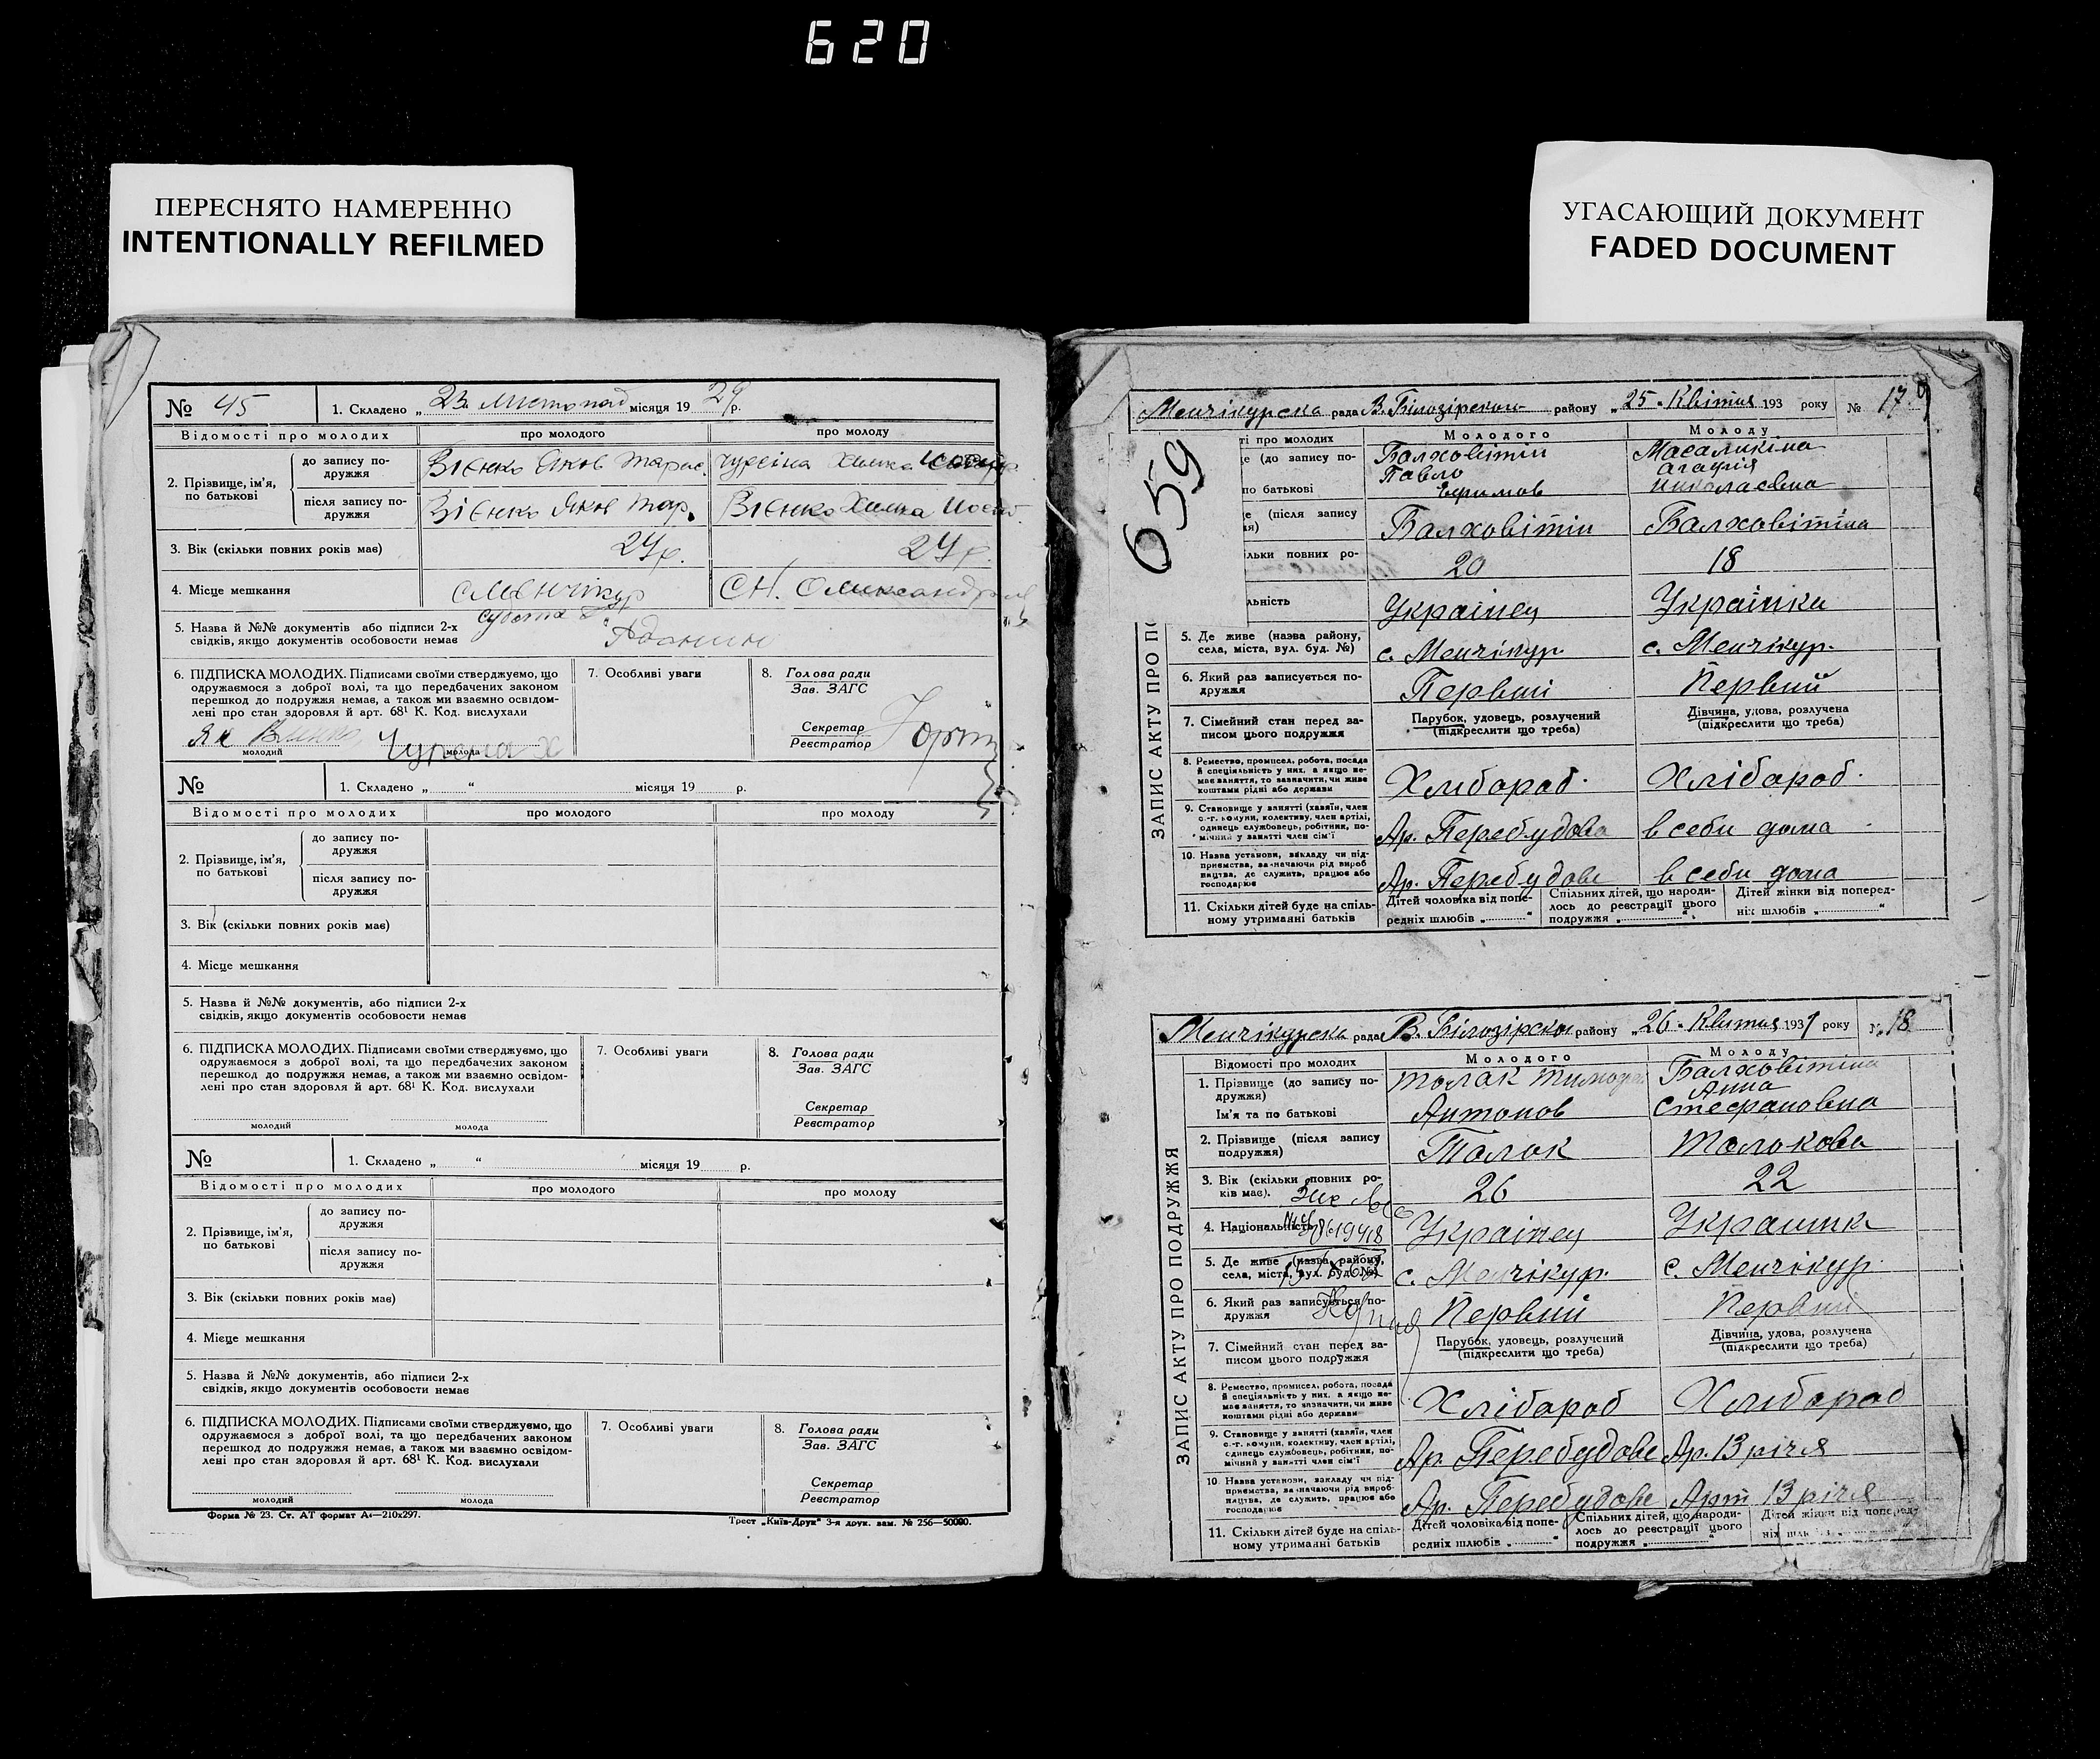 620
ПЕРЕСНЯТО НАМЕРЕННО
INTENTIONALLY REFILMED
УГАСАЮЩИЙ ДОКУМЕНТ
FADED DOCUMENT
№ 45
1. Складено „ 23 Листопад місяця 19 29 р.
Відомості про молодих
про молодого
про молоду
2. Прізвище, ім'я,
по батькові
до запису по-
дружжя
Вієнко Яков Тарас.
Химка
після запису по-
дружжя
Вієнко Яков Тар.
Вієнко Химка Иосиф.
3. Вік (скільки повних років має)
24р.
24р.
4. Місце мешкання
с Менчікур
СН. Олександр
5. Назва й №№ документів або підписи 2-х
свідків, якщо документів особовости немає
6. ПІДПИСКА МОЛОДИХ. Підписами своїми стверджуємо, що
одружаємося з доброї волі, та що передбачених законом
перешкод до подружжя немає, а також ми взаємно освідом-
лені про стан здоровля й арт. 68¹ К. Код. вислухали
молодий
молода
7. Особливі уваги
8. Голова ради
Зав. ЗАГС
Секретар
Реєстратор
№
1. Складено „ “ місяця 19 р.
Відомості про молодих
про молодого
про молоду
2. Прізвище, ім'я,
по батькові
до запису по-
дружжя
після запису по-
дружжя
3. Вік (скільки повних років має)
4. Місце мешкання
5. Назва й №№ документів, або підписи 2-х
свідків, якщо документів особовости немає
6. ПІДПИСКА МОЛОДИХ. Підписами своїми стверджуємо, що
одружаємося з доброї волі, та що передбачених законом
перешкод до подружжя немає, а також ми взаємно освідом-
лені про стан здоровля й арт. 68¹ К. Код. вислухали
молодий
молода
7. Особливі уваги
8. Голова ради
Зав. ЗАГС
Секретар
Реєстратор
№
1. Складено „ “ місяця 19 р.
Відомості про молодих
про молодого
про молоду
2. Прізвище, ім'я,
по батькові
до запису по-
дружжя
після запису по-
дружжя
3. Вік (скільки повних років має)
4. Місце мешкання
5. Назва й №№ документів, або підписи 2-х
свідків, якщо документів особовости немає
6. ПІДПИСКА МОЛОДИХ. Підписами своїми стверджуємо, що
одружаємося з доброї волі, та що передбачених законом
перешкод до подружжя немає, а також ми взаємно освідом-
лені про стан здоровля й арт. 68¹ К. Код. вислухали
молодий
молода
7. Особливі уваги
8. Голова ради
Зав. ЗАГС
Секретар
Реєстратор
Форма № 23. Ст. АТ формат А4—210х297.
Трест „Київ-Друк“ 3-я друк. зам. № 256—50000.
659
Менчікурска рада В. Білозірском району „ 25 “ Квітня 193 року № 17
ті про молодих
Молодого
Молоду
е (до запису по-
по батькові
Балховітін
Павло
Ефимов
Масаликіна
Николаевна
е (після запису
Балховітін
Балховітіна
льки повних ро-
20
18
льність
Украінец
Украінка
5. Де живе (назва району,
села, міста, вул. буд. №)
с. Менчікур.
с. Менчікур.
6. Який раз записується по-
дружжя
Первиі
Первий
7. Сімейний стан перед за-
писом цього подружжя
Парубок, удовець, розлучений
(підкреслити що треба)
Дівчина, удова, розлучена
(підкреслити що треба)
8. Ремество, промисел, робота, посада
й спеціяльність у них, а якщо не-
має заняття, то зазначити, чи живе
коштами рідні або держави
Хлібороб.
Хлібороб.
9. Становище у занятті (хазяїн, член
с.-г. комуни, колективу, член артілі,
одинець службовець, робітник, по-
мічний у занятті член сім'ї
Ар. Перебудова
в себи дома
10. Назва установи, закладу чи під-
приємства, зазначаючи рід вироб
ництва, де служить, працює або
господарює
Ар. Перебудове
в себи дома
11. Скільки дітей буде на спіль-
ному утриманні батьків
Дітей чоловіка від попе-
редніх шлюбів „ “
Спільних дітей, що народи-
лось до реєстрації цього
подружжя „ “
Дітей жінки від поперед-
ніх шлюбів „ “
ЗАПИС АКТУ ПРО ПО
Менчікурска рада В. Білозірском району „ 26 “ Квітня 1931 року № 18
Відомості про молодих
Молодого
Молоду
1. Прізвище (до запису по-
дружжя)
Ім'я та по батькові
Толок Тимофей
Антонов
Балховітіна
Анна
Стефановна
2. Прізвище (після запису
подружжя)
Толок
Толокова
3. Вік (скільки повних ро-
ків має).
26
22
4. Національність
Украінец
Украинка
5. Де живе (назва району,
села, міста, вул. буд. №)
с. Менчікур.
с. Менчікур.
6. Який раз записується по-
дружжя
Первий
Первий
7. Сімейний стан перед за-
писом цього подружжя
Парубок, удовець, розлучений
(підкреслити що треба)
Дівчина, удова, розлучена
(підкреслити що треба)
8. Ремество, промисел, робота, посада
й спеціяльність у них, а якщо не-
має заняття, то зазначити, чи живе
коштами рідні або держави
Хлібороб
Хлібороб
9. Становище у занятті (хазяїн, член
с.-г. комуни, колективу, член артілі,
одинець службовець, робітник, по-
мічний у занятті член сім'ї
Ар. Перебудове
Ар. 13 річя
10. Назва установи, закладу чи під-
приємства, зазначаючи рід вироб-
ництва, де служить, працює або
господарює
Ар. Перебудове
Арт 13 річя
11. Скільки дітей буде на спіль-
ному утриманні батьків
Дітей чоловіка від попе-
редніх шлюбів „ “
Спільних дітей, що народи-
лось до реєстрації цього
подружжя „ “
Дітей жінки від поперед-
ЗАПИС АКТУ ПРО ПОДРУЖЖЯ